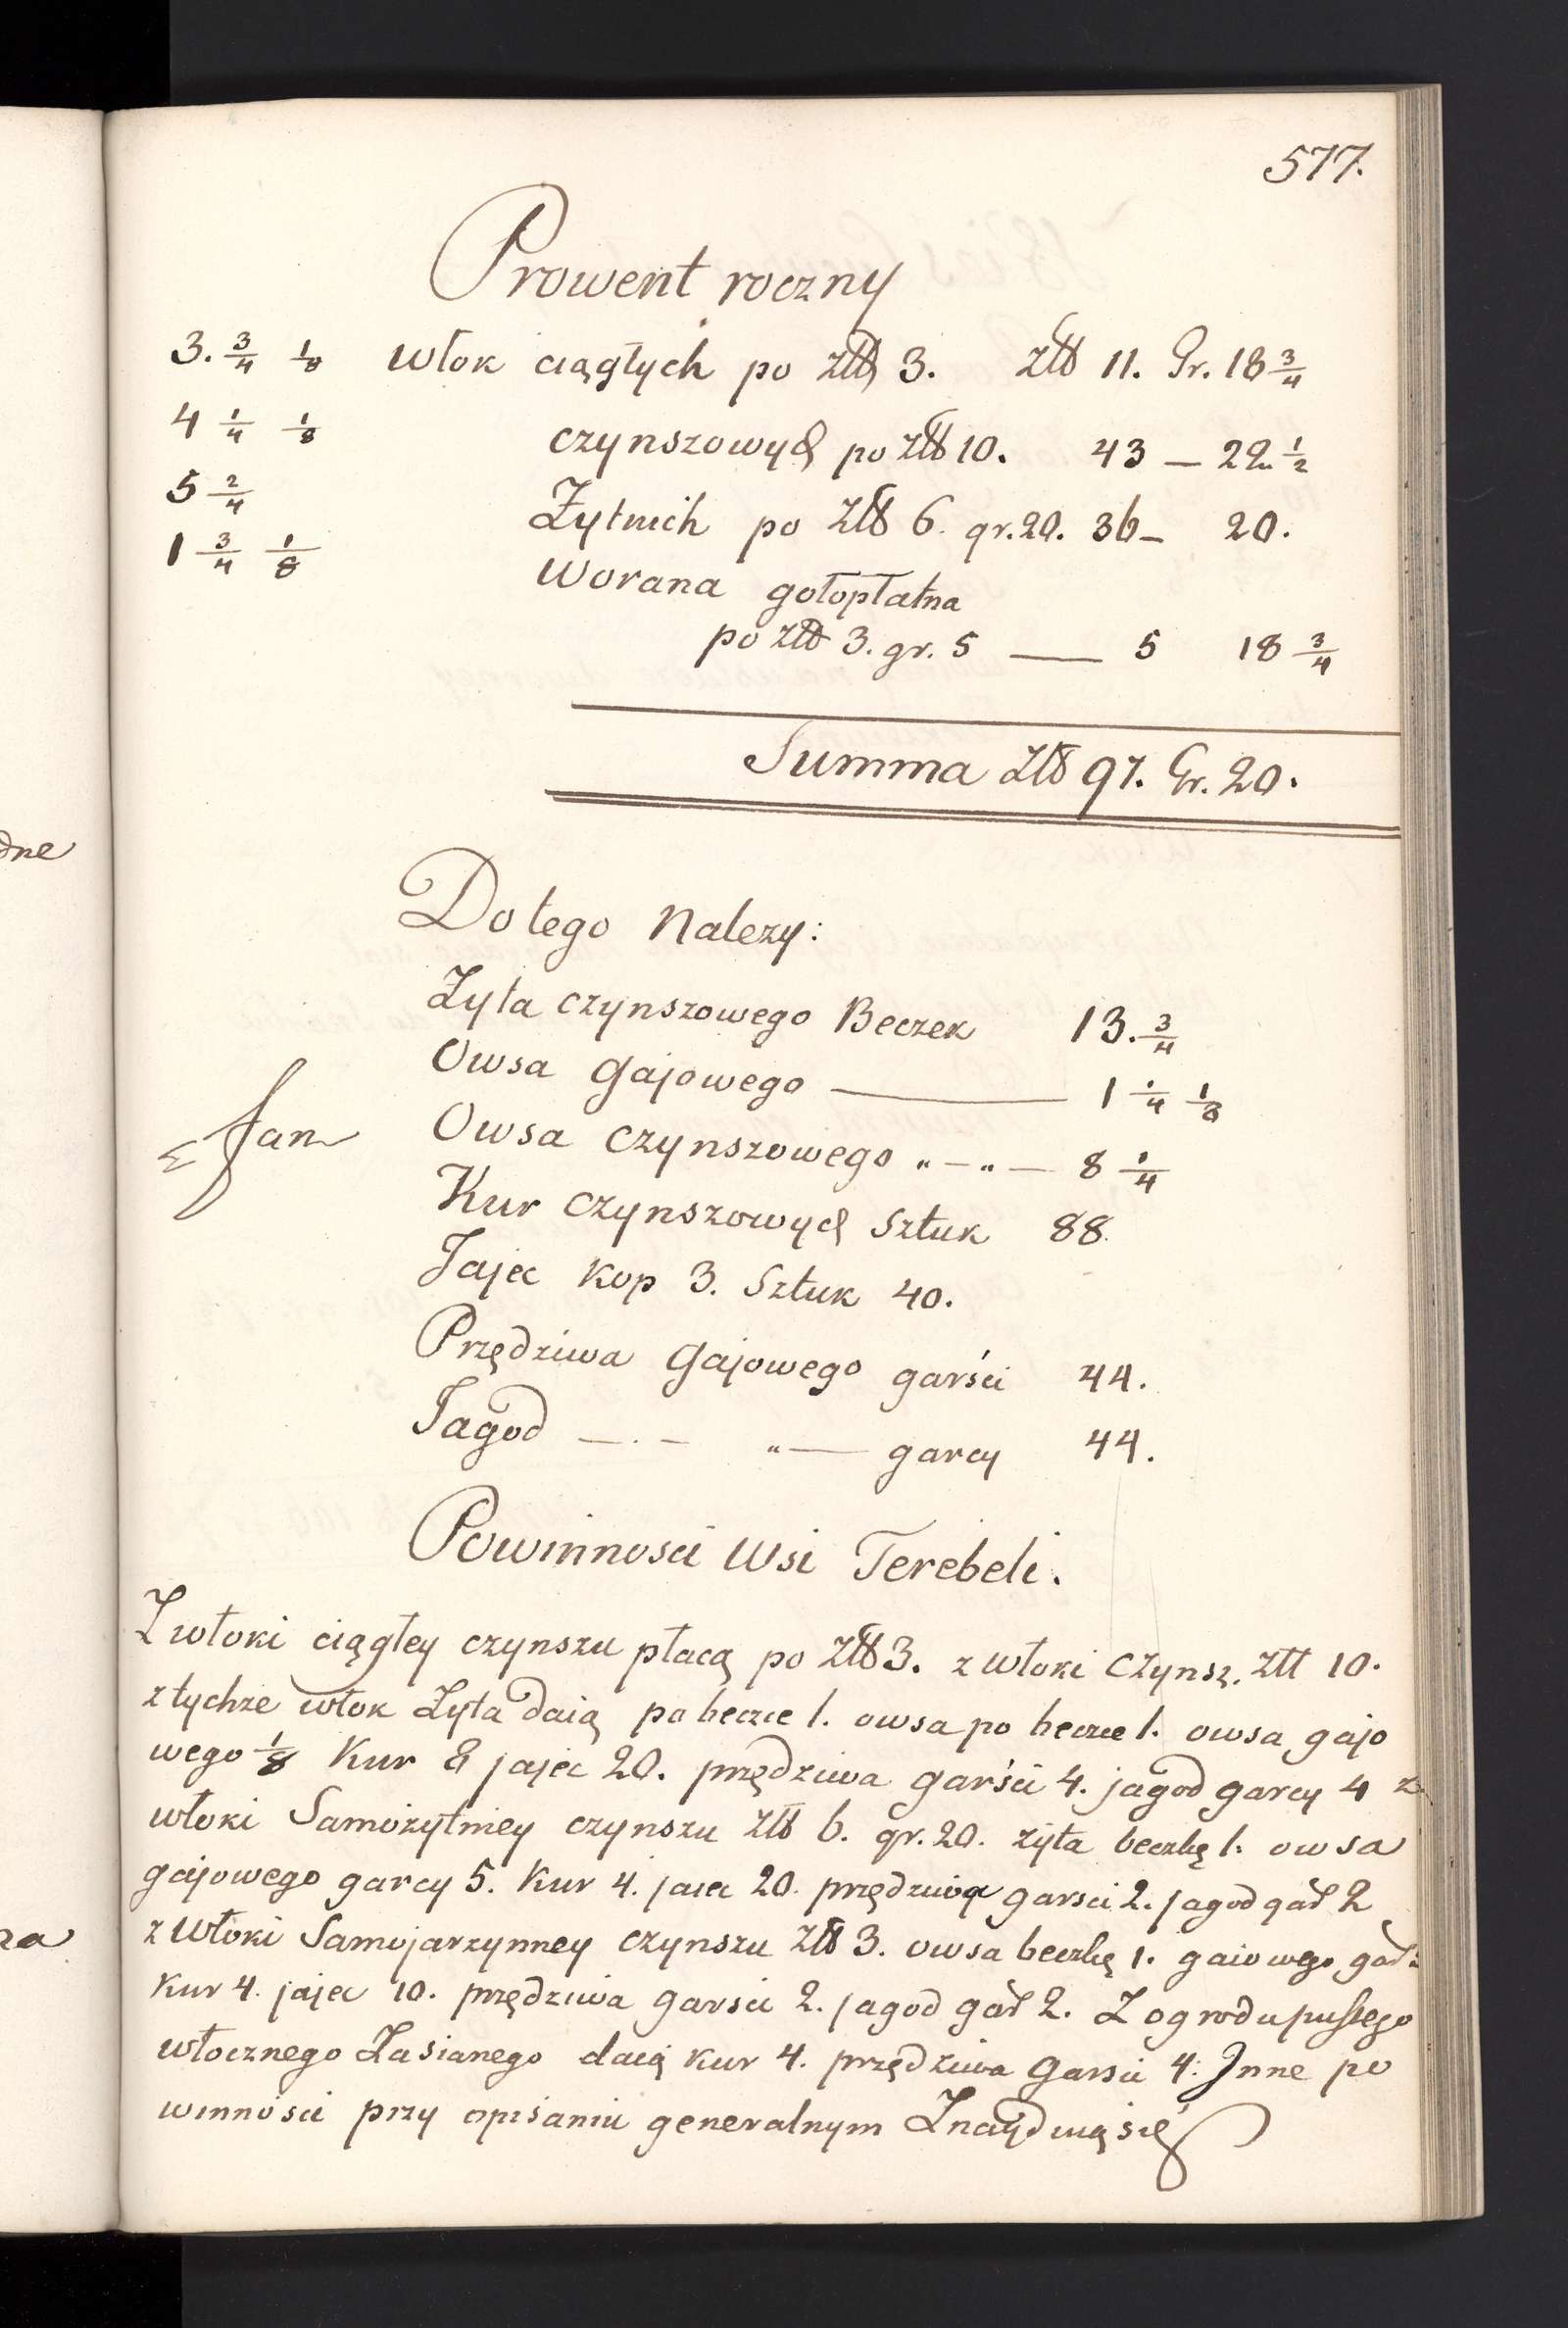 577.
Prowent roczny
3. 3/4 1/8 włok ciągłych po złł 3. złł 11. Gr. 18 3/4
4 1/4 1/8 czynszowych po złł 10. 43 — 22 1/2
5 2/4 Żytnich po złł 6. gr. 20. 36 — 20.
1 3/4 1/8 Worana gołopłatna
po złł 3. gr. 5 — 5 18 3/4
Summa złł 97. Gr. 20.
Do tego Nalezy:
Zyta czynszowego Beczek 13. 3/4
Owsa Gajowego — 1 1/4 1/8
Owsa czynszowego „ — „ — 8 1/4
Kur czynszowych Sztuk 88.
Jajec Kop 3. Sztuk 40.
Przędziwa Gajowego garści 44.
Jagod — . — „ — garcy 44.
Powinnosci Wsi Terebeli.
Z włoki ciągłey czynszu płacą po złł 3. z włoki Czynsz. złł 10.
z tychże włok Zyta daią po beczce 1. owsa po beczce 1. owsa gajo
wego 1/8 Kur 8 jajec 20. przędziwa garści 4. jagod garcy 4 z
włoki Samożytniey czynszu złł 6. gr. 20. żyta beczkę 1. owsa
gajowego garcy 5. Kur 4. jaiec 20. przędziwa garsci 2. jagod gar 2
z włoki Samojarzynney czynszu złł 3. owsa beczkę 1. gaiowego gar:
Kur 4. jajec 10. przędziwa garsci 2. jagod gar 2. Z ogrodu pustego
włocznego Zasianego daią kur 4. przędziwa Garsci 4: Inne po
winności przy opisaniu generalnym Znayduią się
dne
za